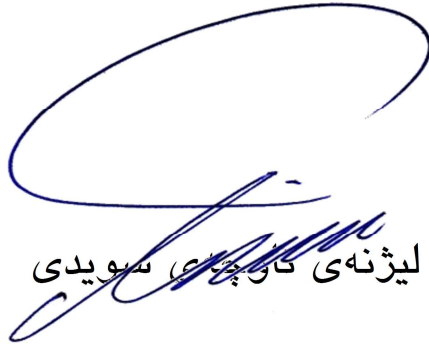 لیژنەی ناوچەی سویدی